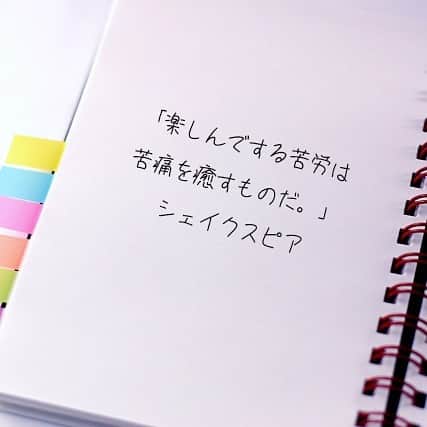 「楽しんでする苦労は
苦痛を癒すものだ。」
シェイクスピア